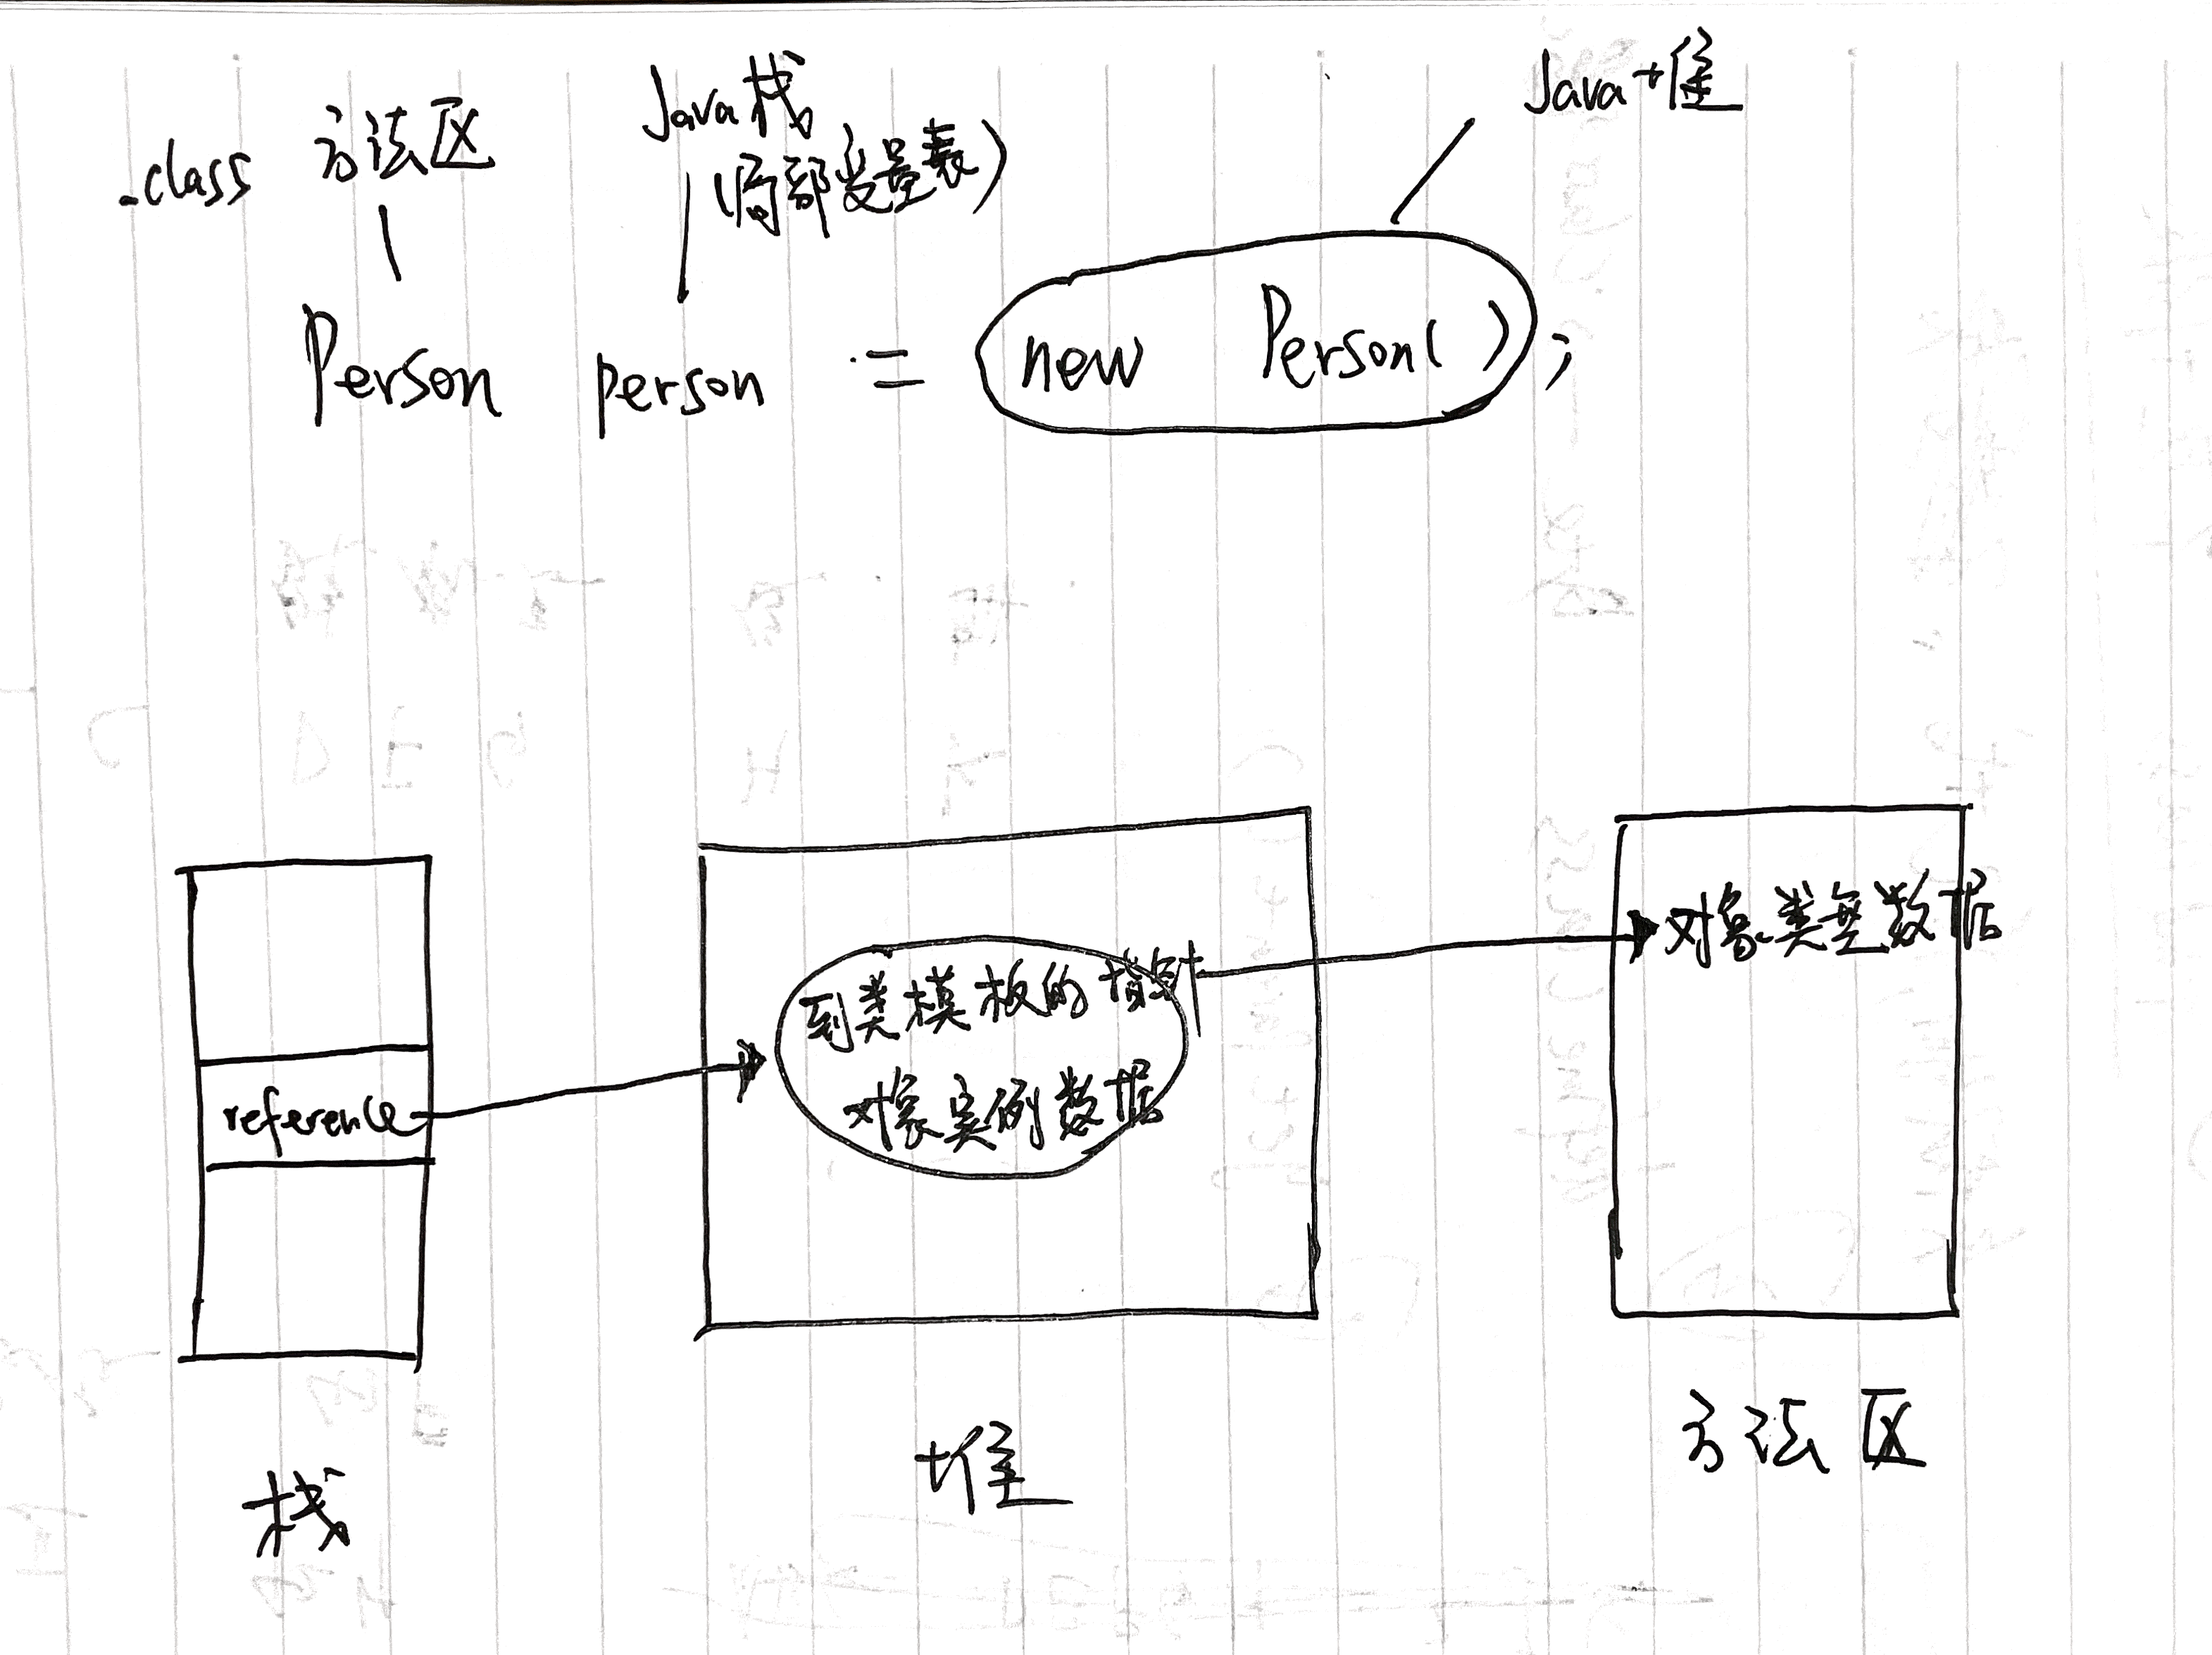 .class 方法区
Java栈
(局部变量表)
Java堆
Person person = new Person();
reference
到类模板的指针
对象实例数据
对象类型数据
栈
堆
方法区